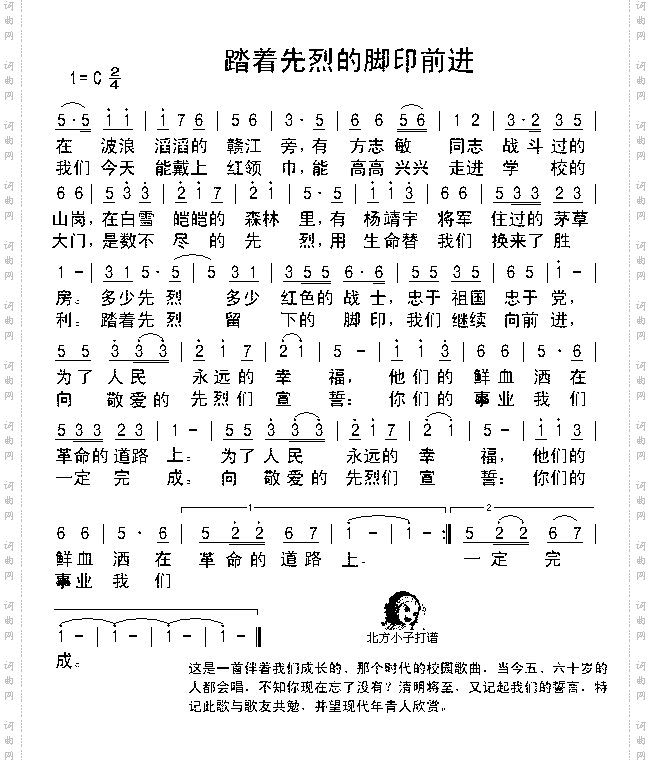 踏着先烈的脚印前进
1=C 2/4
5·5 | 1 1 | 1 7 6 | 5 6 | 3·5 | 6 6 | 5 6 | 1 2 | 3·2 | 3 5 |
在 波浪 滔滔的 赣江 旁,有 方志 敏 同志 战斗 过的
我们 今天 能戴上 红领 巾,能 高高 兴兴 走进 学 校的
6 6 | 5 3 3 | 2 1 7 | 2 1 | 5·5 | 1 1 3 | 6 6 | 5 3 3 | 2 3 |
山岗,在白雪 皑皑的 森林 里,有 杨靖宇 将军 住过的 茅草
大门,是数不 尽的先 烈,用 生命替 我们 换来了 胜
1 - | 3 1 5·5 | 5 | 3 1 | 3 5 5 | 6·6 | 5 5 | 3 5 | 6 5 | 1 - |
房。多少先 烈 多少 红色的 战士,忠于 祖国 忠于 党,
利。踏着先 烈 留 下的 脚印,我们 继续 向前 进,
5 5 | 3 3 3 | 2 1 7 | 2 1 | 5 - | 1 1 3 | 6 6 | 5·6 |
为了 人民 永远的 幸 福,他们的 鲜血 洒在
向 敬爱的 先烈们 宣 誓:你们的 事业 我们
5 3 3 2 3 | 1 - | 5 5 | 3 3 3 | 2 1 7 | 2 1 | 5 - | 1 1 3 |
革命的 道路 上。为了 人民 永远的 幸 福,他们的
一定 完 成。向 敬爱的 先烈们 宣 誓:你们的
1 2
6 6 | 5·6 | 5 2 2 6 7 | 1 - | 1 - :‖ 5 2 2 | 6 7 |
鲜血 洒 在 革命的 道路 上。 一定 完
事业 我 们
1 - | 1 - | 1 - | 1 - ‖
成。
北方小子打谱
这是一首伴着我们成长的、那个时代的校园歌曲,当今五、六十岁的
人都会唱,不知你现在忘了没有?清明将至,又记起我们的誓言,特
记此歌与歌友共勉,并望现代年青人欣赏。
词曲网